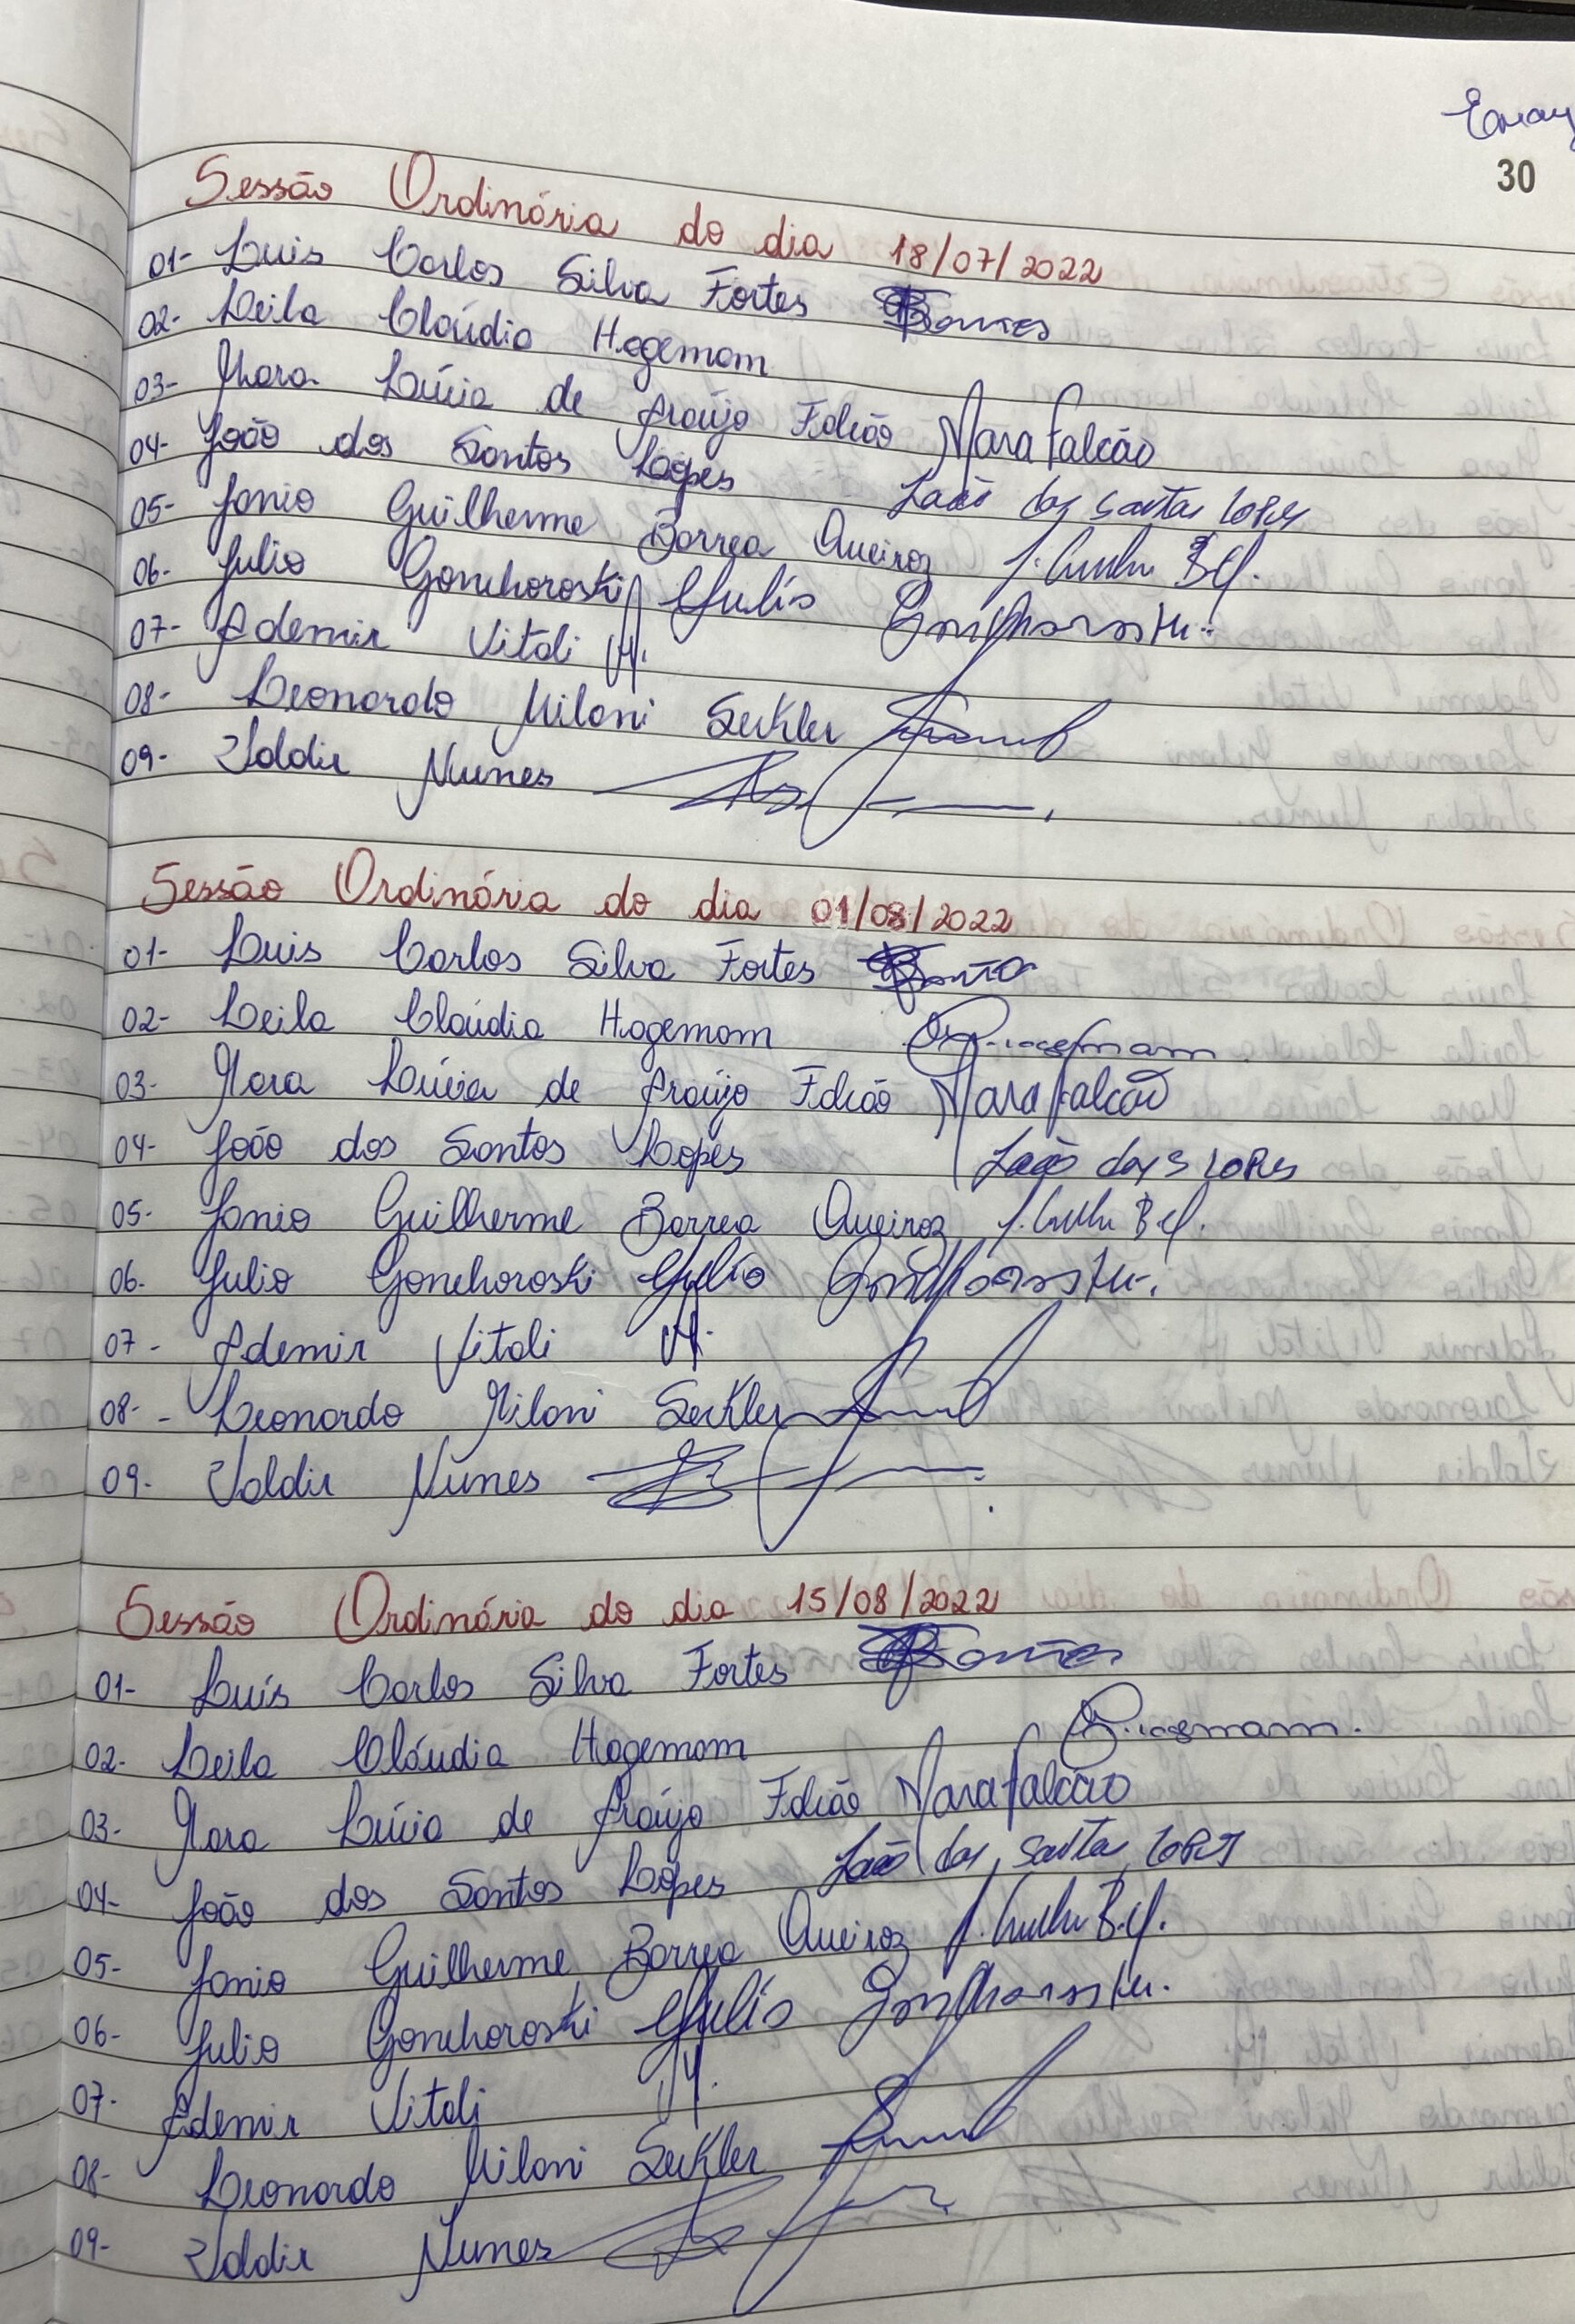 30
Sessão Ordinária do dia 18/07/2022
01- Luis Carlos Silva Fortes
02- Leila Cláudia Hagemam
03- Mara Lúcia de Araújo Falcão Mara Falcão
04- João dos Santos Lopes João dos Santos Lopes
05- Janio Guilherme Borrea Queiroz
06- Julio Gonchoroski Julio Gonchoroski
07- Ademir Vitali
08- Leonardo Milani Seckler
09- Valdir Nunes
Sessão Ordinária do dia 01/08/2022
01- Luis Carlos Silva Fortes
02- Leila Cláudia Hagemam
03- Mara Lúcia de Araújo Falcão Mara Falcão
04- João dos Santos Lopes João dos S Lopes
05- Janio Guilherme Borrea Queiroz
06- Julio Gonchoroski Julio Gonchoroski
07- Ademir Vitali
08- Leonardo Milani Seckler
09- Valdir Nunes
Sessão Ordinária do dia 15/08/2022
01- Luis Carlos Silva Fortes
02- Leila Cláudia Hagemam
03- Mara Lúcia de Araújo Falcão Mara Falcão
04- João dos Santos Lopes João dos Santos Lopes
05- Janio Guilherme Borrea Queiroz
06- Julio Gonchoroski Julio Gonchoroski
07- Ademir Vitali
08- Leonardo Milani Seckler
09- Valdir Nunes